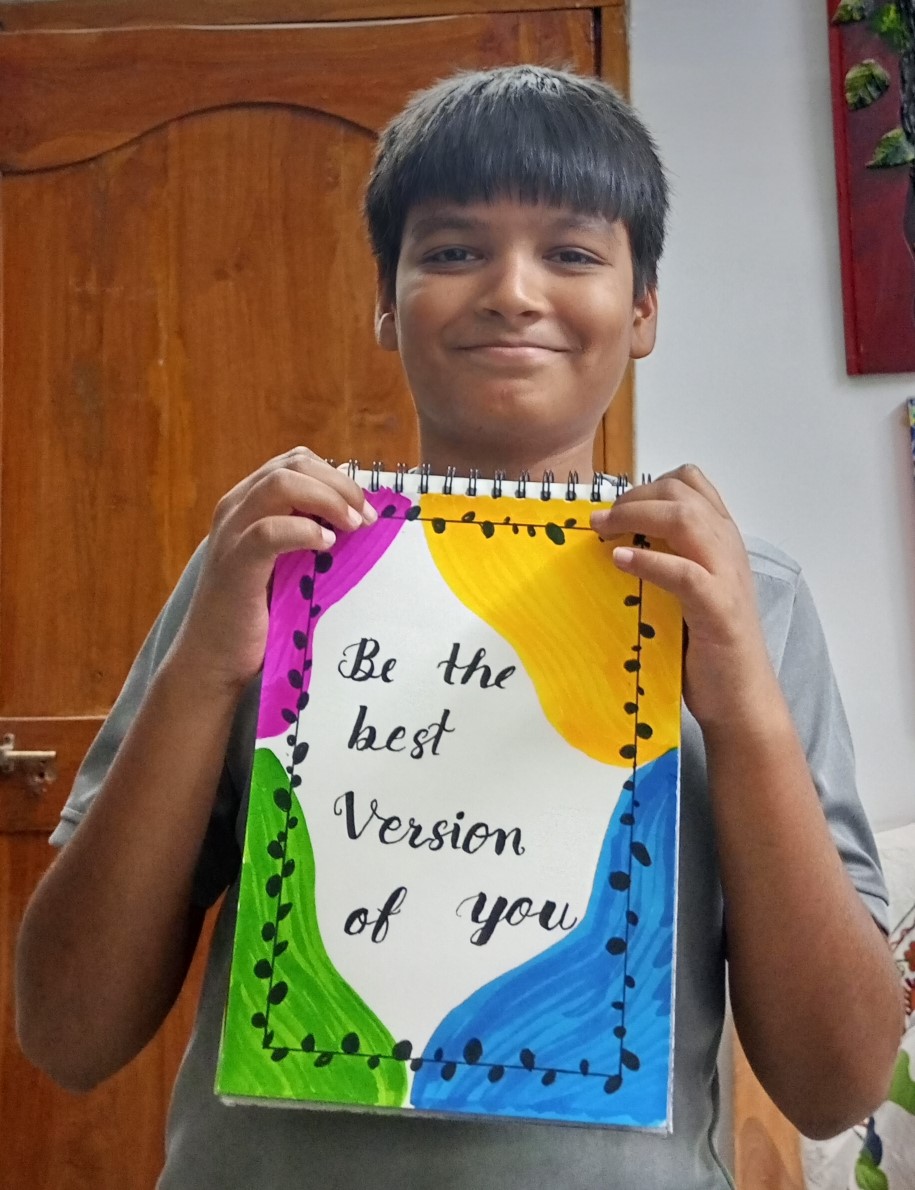 Be the
best
Version
of you